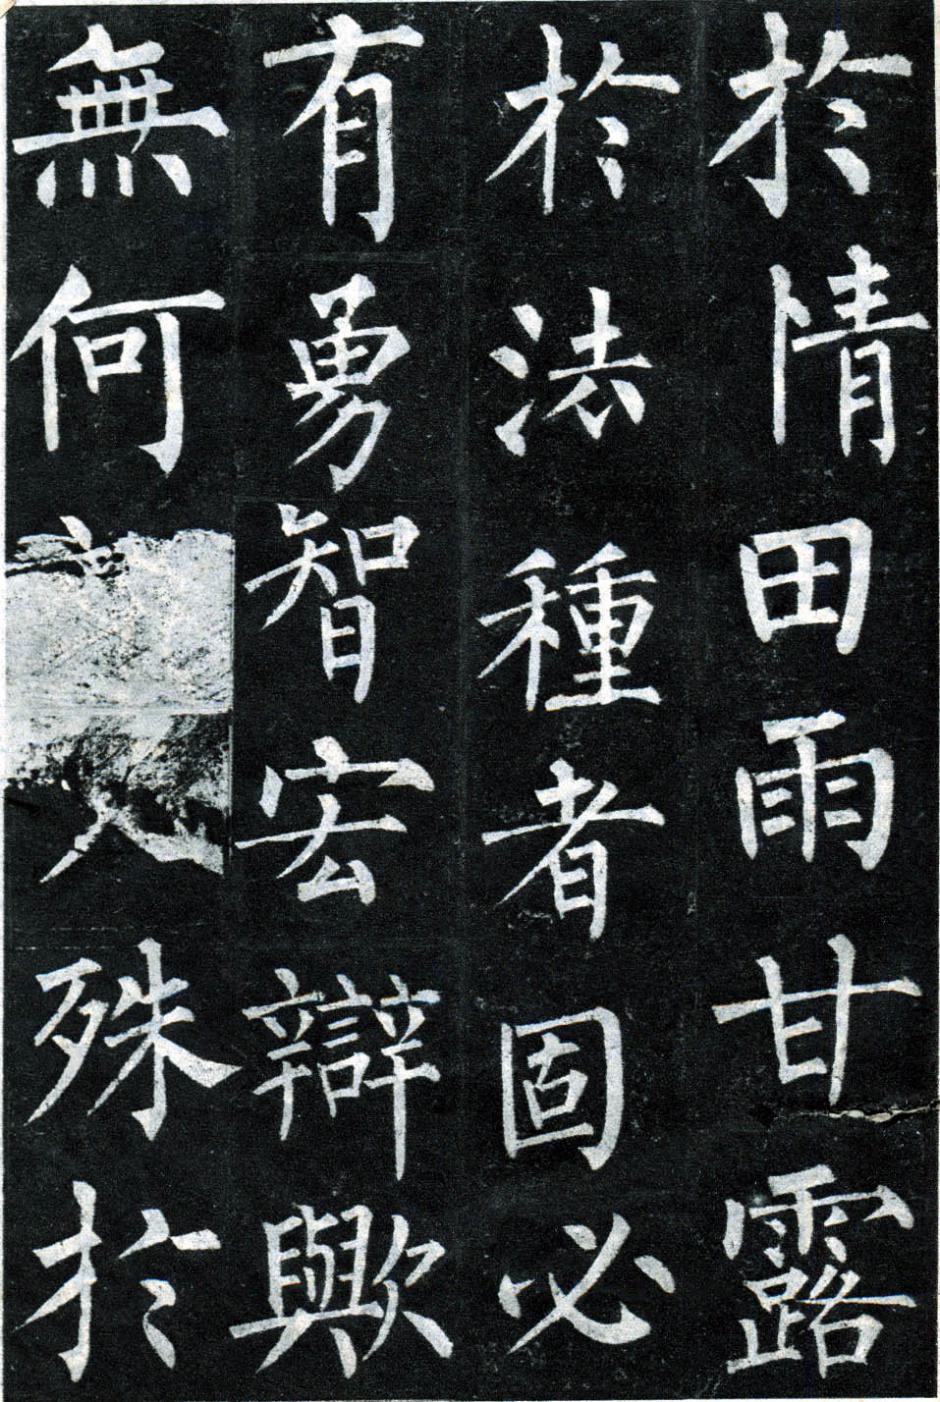 於情田雨甘露
於法種者固必
有勇智宏辯歟
無何文殊於